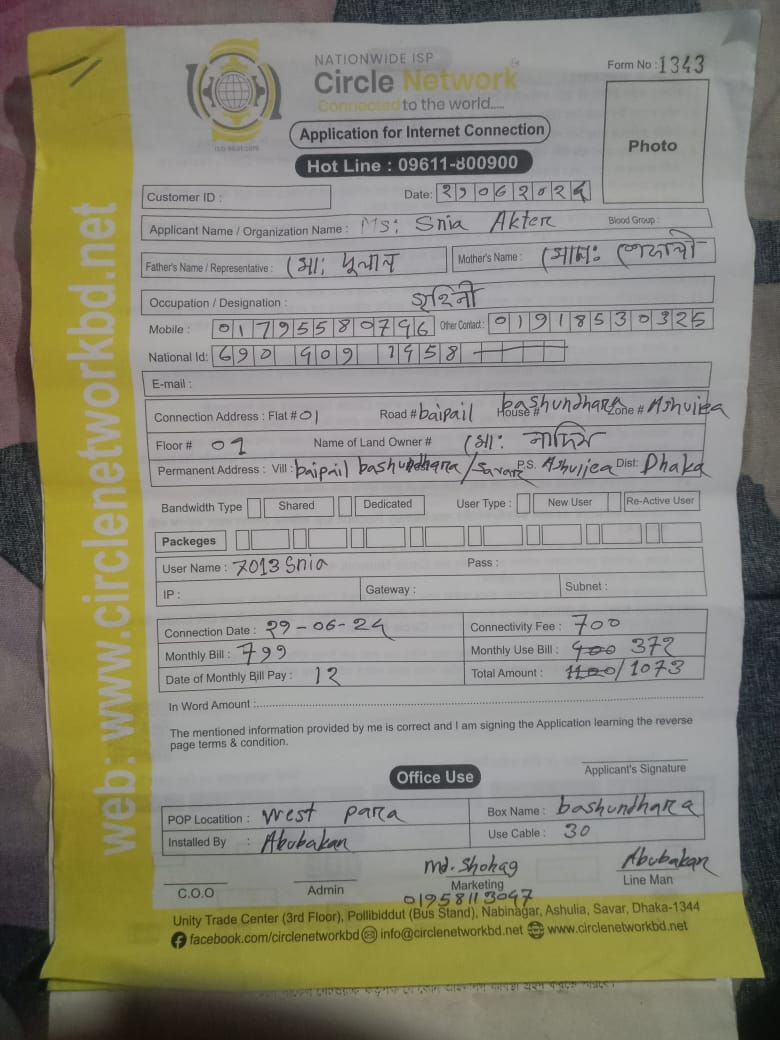 NATIONWIDE ISP
Circle Network
Connected to the world.....
Form No : 1343
Application for Internet Connection
Photo
Hot Line : 09611-800900
Customer ID :
Date: 29062024
Applicant Name / Organization Name : Ms: Snia Akter
Blood Group :
Father's Name / Representative : মো: দুলাল
Mother's Name : মোসা:
Occupation / Designation : গৃহিনী
Mobile : 01795580796 Other Contact : 01918530325
National Id: 690 909 1958
E-mail :
Connection Address : Flat # 01 Road # baipail House # bashundhara Zone # Ashuliea
Floor # 01 Name of Land Owner # মো: নাদিম
Permanent Address : Vill : baipail bashundhara / Savar P.S. Ashuliea Dist: Dhaka
Bandwidth Type Shared Dedicated User Type : New User Re-Active User
Packeges
User Name : 7013 Snia Pass :
IP : Gateway : Subnet :
Connection Date : 29-06-24 Connectivity Fee : 700
Monthly Bill : 799 Monthly Use Bill : 400 372
Date of Monthly Bill Pay : 12 Total Amount : 1100/1073
In Word Amount :
The mentioned information provided by me is correct and I am signing the Application learning the reverse
page terms & condition.
Applicant's Signature
Office Use
POP Locatition : west para Box Name : bashundhara
Installed By : Abubakar Use Cable : 30
Md. Shohag Abubakar
C.O.O Admin Marketing Line Man
01958113047
Unity Trade Center (3rd Floor), Pollibiddut (Bus Stand), Nabinagar, Ashulia, Savar, Dhaka-1344
facebook.com/circlenetworkbd info@circlenetworkbd.net www.circlenetworkbd.net
web: www.circlenetworkbd.net